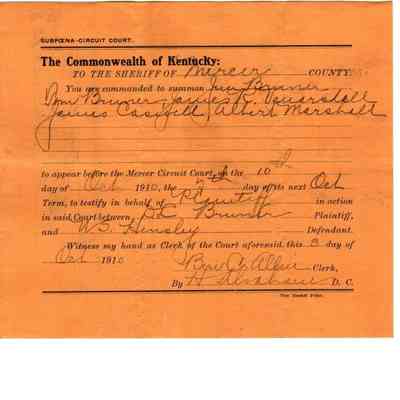 SUBPŒNA-CIRCUIT COURT.
The Commonwealth of Kentucky:
TO THE SHERIFF OF Mercer COUNTY:
You are commanded to summon Jim Bruner
Wm Bruner, James R. Vanarshall
James Casgill, Albert Marshall
to appear before the Mercer Circuit Court, on the 10th
day of Oct 1910, the 7th day of its next Oct
Term, to testify in behalf of Plaintiff in action
in said Court between Bruner Plaintiff,
and W.S. Hensley Defendant.
Witness my hand as Clerk of the Court aforesaid, this 3 day of
Oct 1910
Ben C. Allin Clerk,
By D. C.